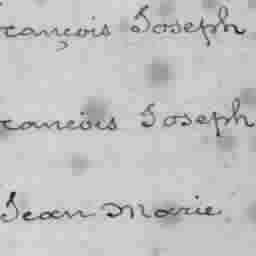 rançois Joseph
rançois Joseph
Jean Marie